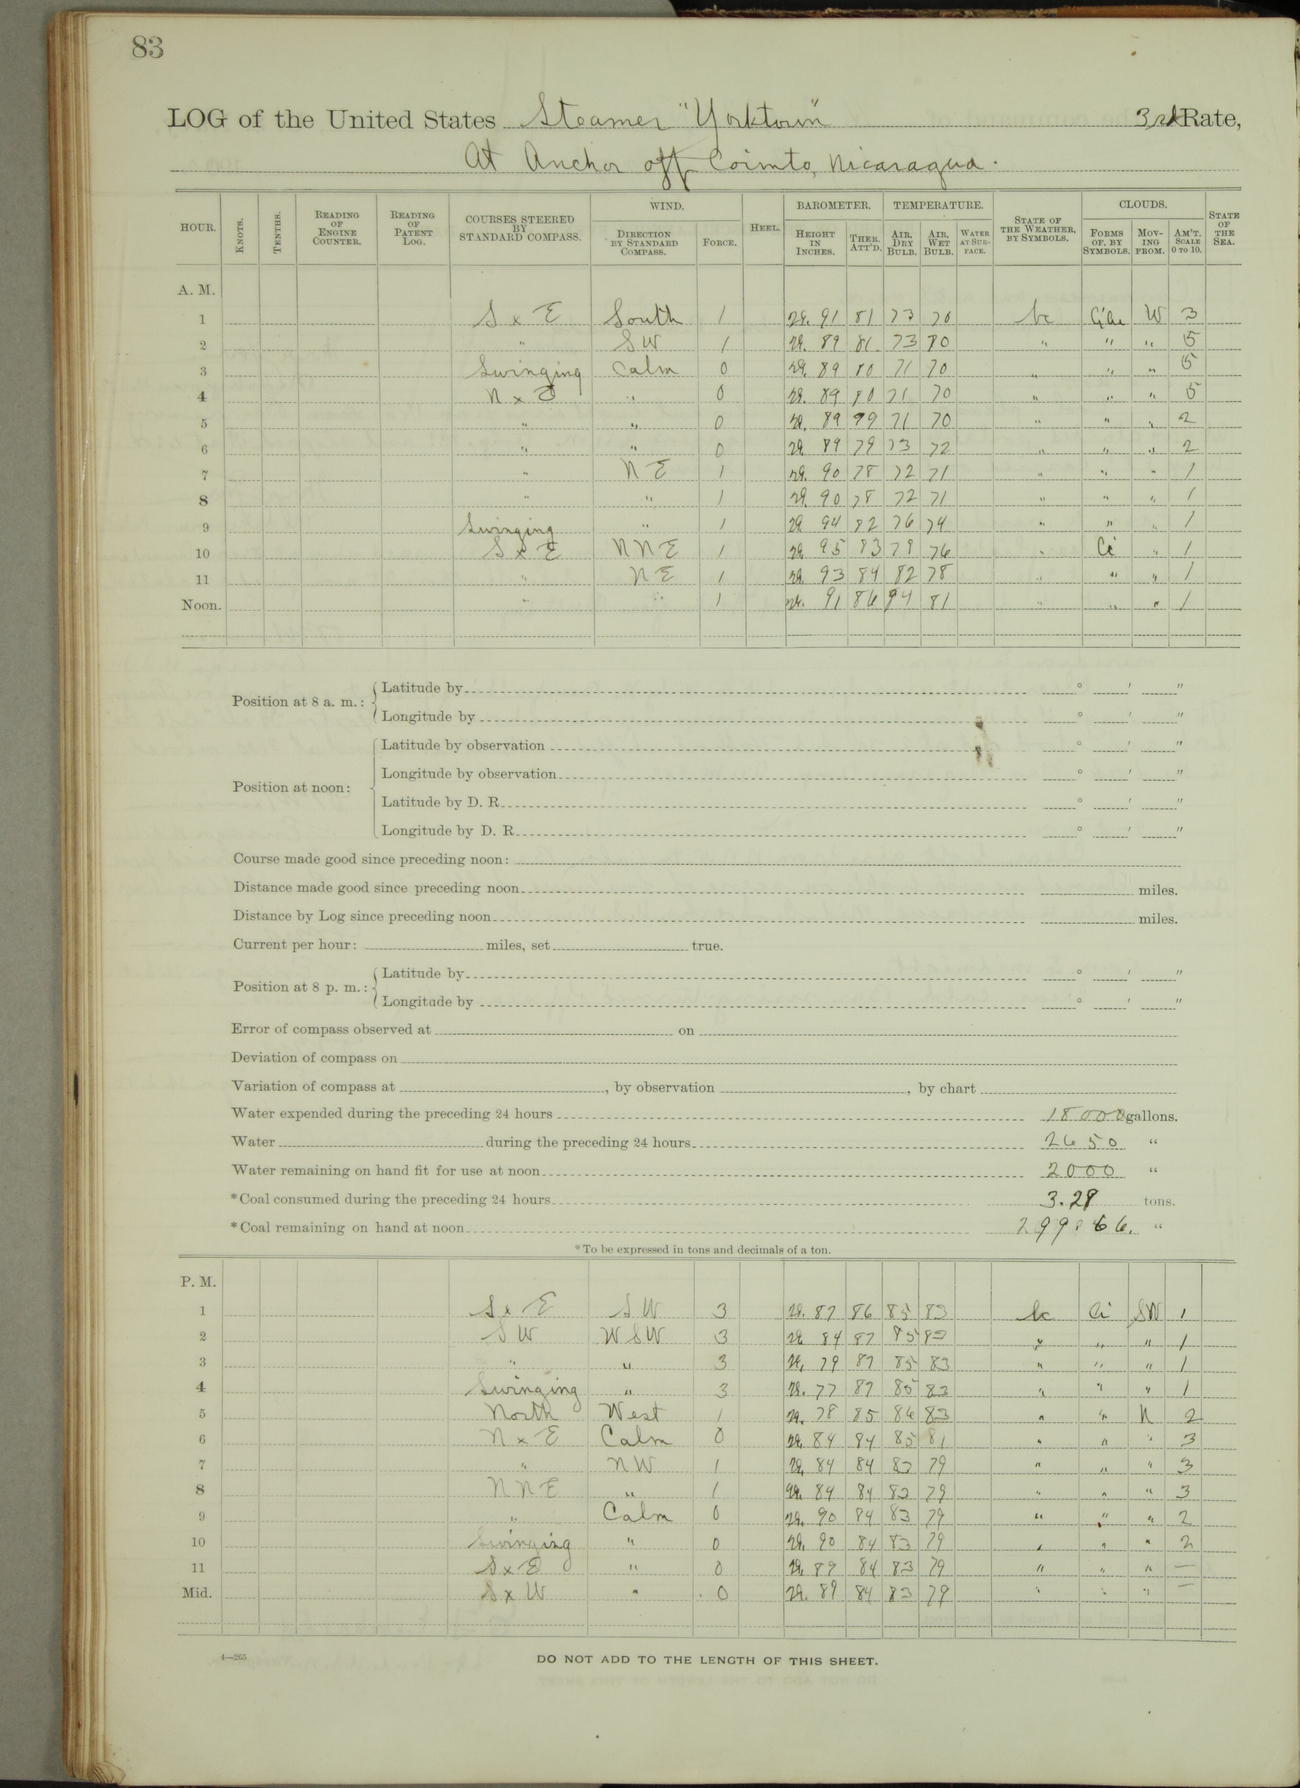 83
LOG of the United States Steamer "Yorktown" 3rd Rate,
At Anchor off Corinto, Nicaragua.
HOUR. KNOTS. TENTHS. READING OF ENGINE COUNTER. READING OF PATENT LOG. COURSES STEERED BY STANDARD COMPASS. WIND. DIRECTION BY STANDARD COMPASS. FORCE. HEEL. BAROMETER. HEIGHT IN INCHES. THER. ATT'D. TEMPERATURE. AIR, DRY BULB. AIR, WET BULB. WATER AT SURFACE. STATE OF THE WEATHER, BY SYMBOLS. CLOUDS. FORMS OF, BY SYMBOLS. MOVING FROM. AM'T. SCALE 0 TO 10. STATE OF THE SEA.
A. M.
1 S x E South 1 29. 91 81 73 70 bc W 3
2 " SW 1 29. 89 81 73 70 " " " 5
3 Swinging Calm 0 29. 89 80 71 70 " " " 5
4 N x E " 0 29. 89 80 71 70 " " " 5
5 " " 0 29. 89 79 71 70 " " " 2
6 " " 0 29 89 79 73 72 " " " 2
7 " NE 1 29. 90 78 72 71 " " " 1
8 " " 1 29. 90 78 72 71 " " " 1
9 Swinging " 1 29 94 82 76 74 " " " 1
10 S x E NNE 1 29 95 83 79 76 " Ci " 1
11 " NE 1 29. 93 84 82 78 " " " 1
Noon. " " 1 29. 91 86 84 81 " " " 1
Position at 8 a. m.: Latitude by ° ' "
Longitude by ° ' "
Position at noon: Latitude by observation ° ' "
Longitude by observation ° ' "
Latitude by D. R. ° ' "
Longitude by D. R. ° ' "
Course made good since preceding noon:
Distance made good since preceding noon miles.
Distance by Log since preceding noon miles.
Current per hour: miles, set true.
Position at 8 p. m.: Latitude by ° ' "
Longitude by ° ' "
Error of compass observed at on
Deviation of compass on
Variation of compass at , by observation , by chart
Water expended during the preceding 24 hours 18000 gallons.
Water during the preceding 24 hours 2650 "
Water remaining on hand fit for use at noon 2000 "
*Coal consumed during the preceding 24 hours 3.28 tons.
*Coal remaining on hand at noon "
*To be expressed in tons and decimals of a ton.
P. M.
1 S x E SW 3 29. 87 86 85 83 bc Ci SW 1
2 SW WSW 3 29. 84 87 85 83 " " " 1
3 " " 3 29. 79 87 85 83 " " " 1
4 Swinging " 3 29. 77 87 85 83 " " " 1
5 North West 1 29. 78 85 86 83 " " N 2
6 N x E Calm 0 29. 84 84 85 81 " " " 3
7 " NW 1 29. 84 84 83 79 " " " 3
8 NNE " 1 29. 84 84 83 79 " " " 3
9 " Calm 0 29. 90 84 83 79 " " " 2
10 Swinging " 0 29. 90 84 83 79 " " " 2
11 S x E " 0 29. 89 84 83 79 " " " —
Mid. S x W " 0 29. 89 84 83 79 " " " —
4—265
DO NOT ADD TO THE LENGTH OF THIS SHEET.